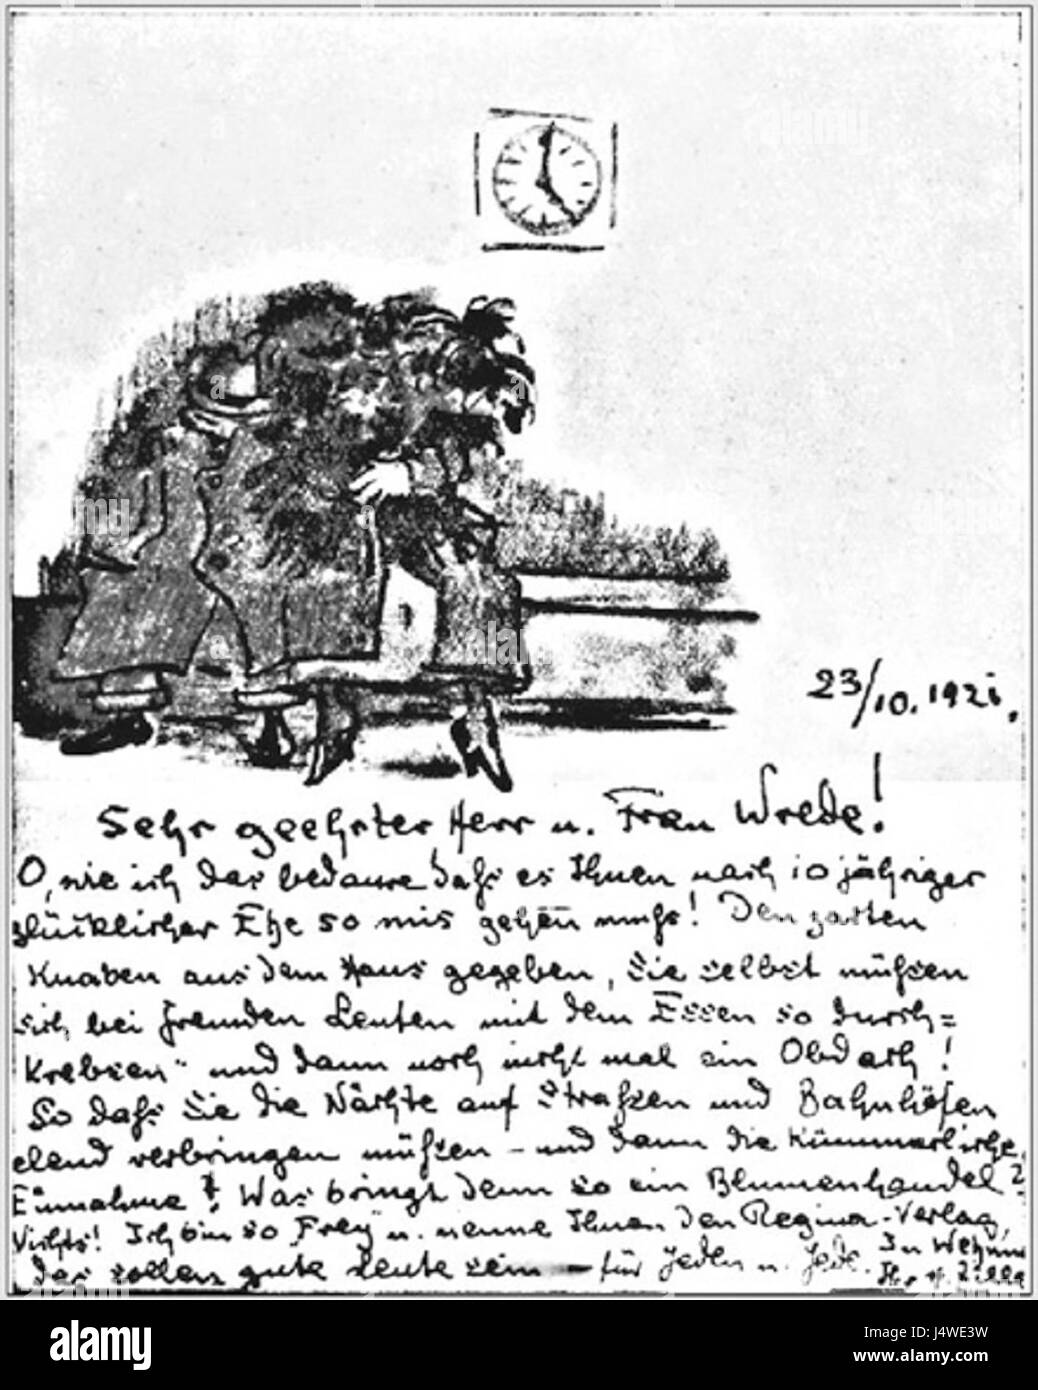 23/10.1921.
Sehr geehrter Herr u. Frau Wrede!
O, wie ich das bedaure dass es Ihnen nach 10 jähriger
glücklicher Ehe so mis gehen muss! Den zarten
Knaben aus dem Haus gegeben, Sie selbst müssen
sich bei fremden Leuten mit dem Essen so durch=
Krebsen" und dann noch nicht mal ein Obdach!
So dass Sie die Nächte auf Strassen und Bahnhöfen
elend verbringen müssen – und dann die Kümmerliche
Einnahme! Was bringt denn so ein Blumenhandel?
Nichts! Ich bin so Frey u. nenne Ihnen den Regina-Verlag,
das sollen gute Leute sein – für Jeden u. Jede.
In
Ihr H. Zille
alamy
Image ID: J4WE3W
www.alamy.com